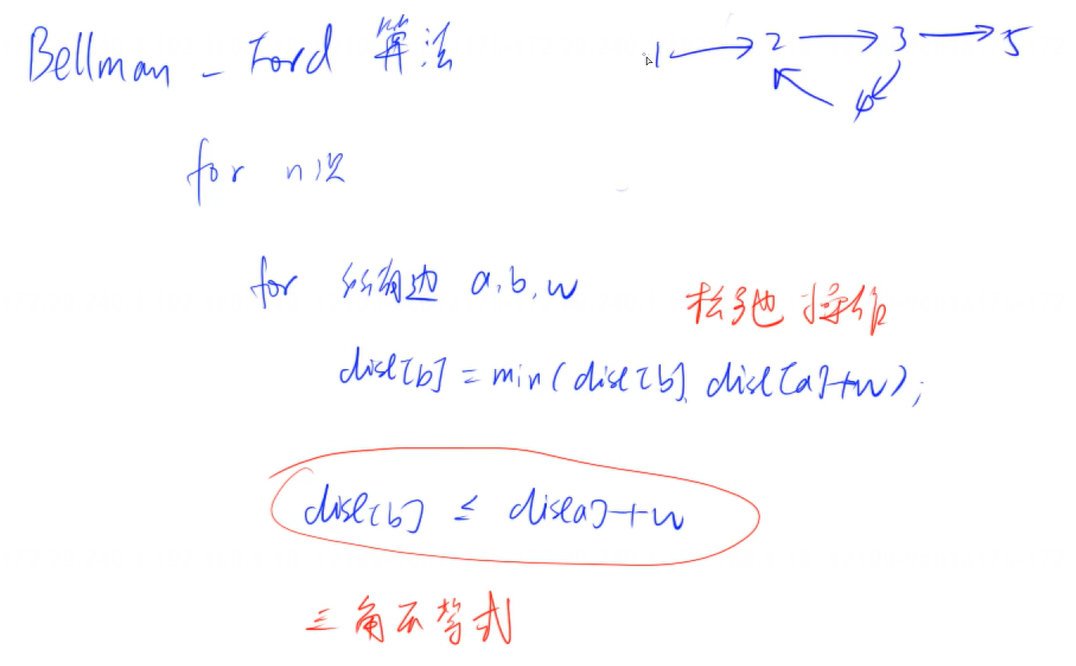 Bellman - Ford 算法
1 → 2 → 3 → 5
4
for n次
for 所有边 a,b,w
松弛操作
dist[b] = min(dist[b], dist[a]+w);
dist[b] ≤ dist[a]+w
三角不等式